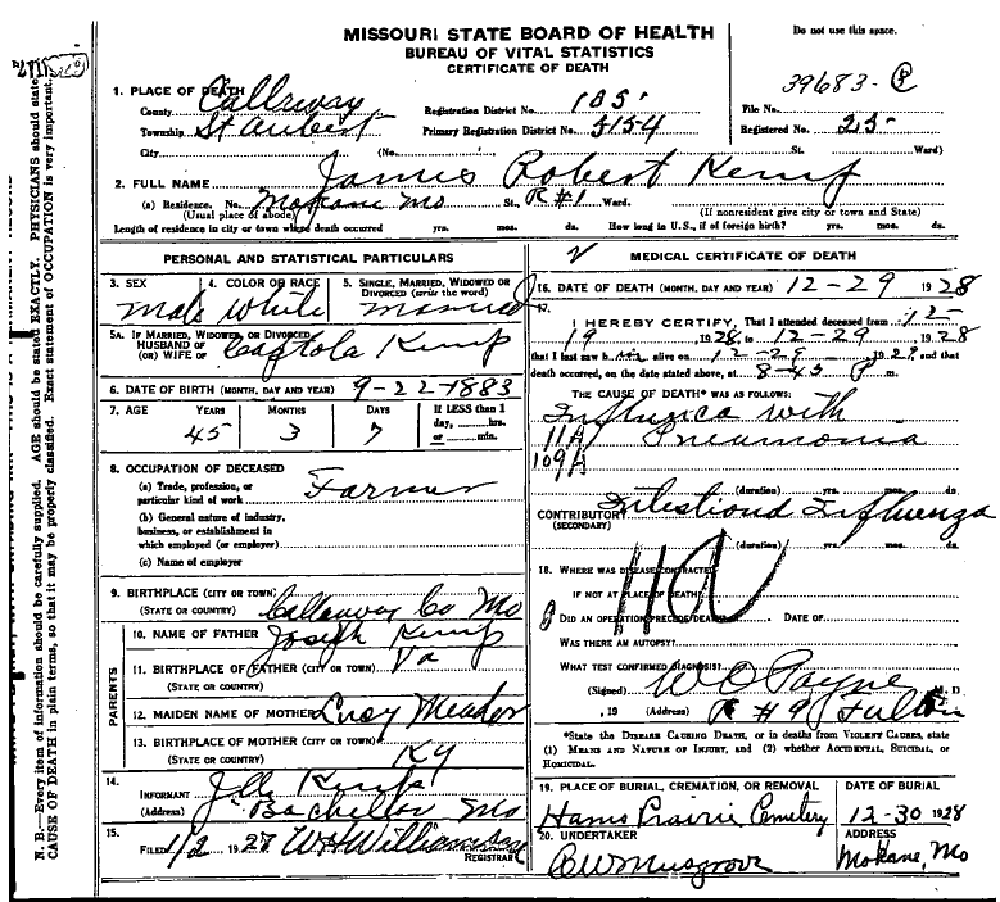 MISSOURI STATE BOARD OF HEALTH
BUREAU OF VITAL STATISTICS
CERTIFICATE OF DEATH
Do not use this space.
39683-
1. PLACE OF DEATH
County Callaway Registration District No. 185 File No.
Township St Aubert Primary Registration District No. 5154 Registered No. 25
City (No. St. Ward)
2. FULL NAME James Robert Kemp
(a) Residence. No. Mokane Mo St., R#1 Ward.
(Usual place of abode) (If nonresident give city or town and State)
Length of residence in city or town where death occurred yrs. mos. ds. How long in U.S., if of foreign birth? yrs. mos. ds.
PERSONAL AND STATISTICAL PARTICULARS
3. SEX 4. COLOR OR RACE 5. SINGLE, MARRIED, WIDOWED OR DIVORCED (write the word)
Male White Married
5A. IF MARRIED, WIDOWED, OR DIVORCED
HUSBAND OF
(OR) WIFE OF Captola Kemp
6. DATE OF BIRTH (MONTH, DAY AND YEAR) 9-22-1883
7. AGE YEARS MONTHS DAYS If LESS than 1 day, hrs. or min.
45 3 7
8. OCCUPATION OF DECEASED
(a) Trade, profession, or
particular kind of work Farmer
(b) General nature of industry,
business, or establishment in
which employed (or employer)
(c) Name of employer
9. BIRTHPLACE (CITY OR TOWN)
(STATE OR COUNTRY) Callaway Co Mo
PARENTS
10. NAME OF FATHER Joseph Kemp
11. BIRTHPLACE OF FATHER (CITY OR TOWN) Va
(STATE OR COUNTRY)
12. MAIDEN NAME OF MOTHER Lucy Meador
13. BIRTHPLACE OF MOTHER (CITY OR TOWN)
(STATE OR COUNTRY) Ky
14.
INFORMANT Kemp
(Address) Bachellor Mo
15.
FILED 1/2 1927 W H Williamson
REGISTRAR
MEDICAL CERTIFICATE OF DEATH
16. DATE OF DEATH (MONTH, DAY AND YEAR) 12-29 1928
17.
I HEREBY CERTIFY, That I attended deceased from 12-
19, 1928 to 12-29, 1928
that I last saw him alive on 12-29, 1928, and that
death occurred, on the date stated above, at 8-45 P m.
THE CAUSE OF DEATH* WAS AS FOLLOWS:
Influenza with
11A Pneumonia
109A
(duration) yrs. mos. ds.
CONTRIBUTORY Intestional Influenza
(SECONDARY)
(duration) yrs. mos. ds.
18. WHERE WAS DISEASE CONTRACTED
IF NOT AT PLACE OF DEATH?
DID AN OPERATION PRECEDE DEATH? DATE OF
WAS THERE AN AUTOPSY?
WHAT TEST CONFIRMED DIAGNOSIS?
(Signed) W C Payne M. D
, 19 (Address) R #9 Fulton
*State the DISEASE CAUSING DEATH, or in deaths from VIOLENT CAUSES, state
(1) MEANS AND NATURE OF INJURY, and (2) whether ACCIDENTAL, SUICIDAL, or
HOMICIDAL.
19. PLACE OF BURIAL, CREMATION, OR REMOVAL DATE OF BURIAL
Hams Prairie Cemetery 12-30 1928
20. UNDERTAKER ADDRESS
C W Musgrove Mokane, Mo
N. B.—Every item of information should be carefully supplied. AGE should be stated EXACTLY. PHYSICIANS should state
CAUSE OF DEATH in plain terms, so that it may be properly classified. Exact statement of OCCUPATION is very important.